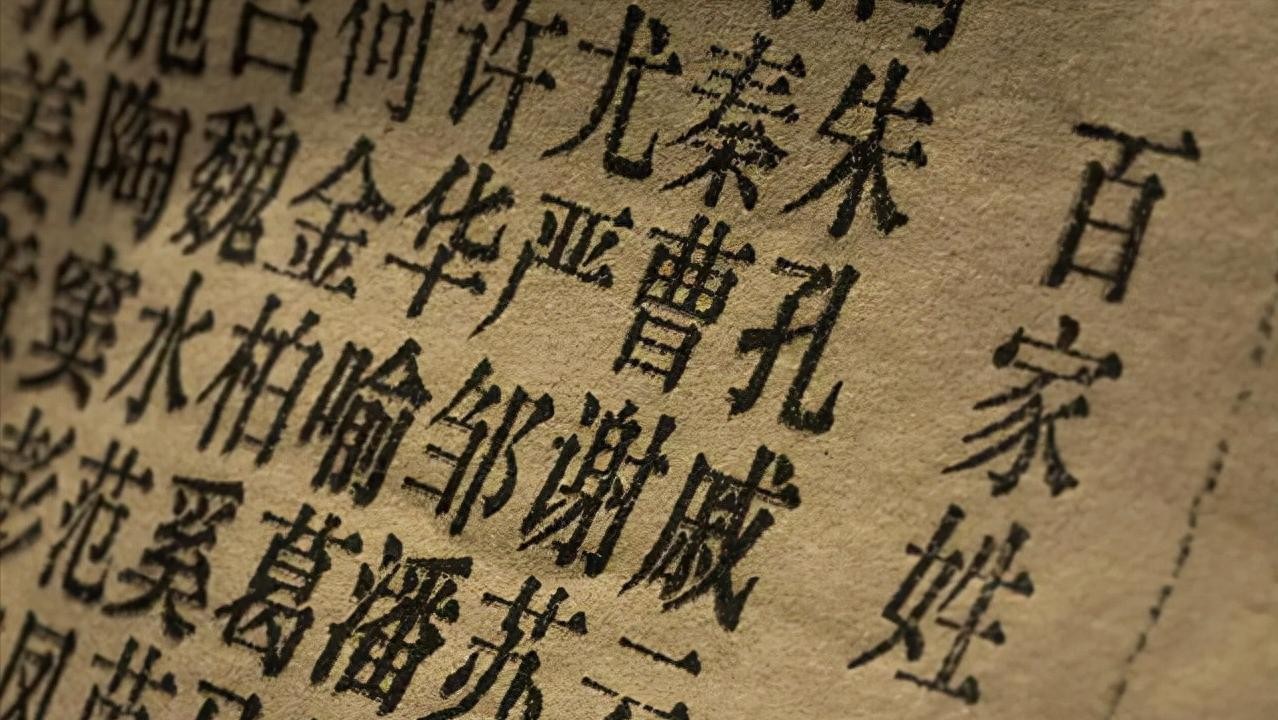 百家姓
朱秦尤许何吕施张
孔曹严华金魏陶姜
戚谢邹喻柏水窦章
云苏潘葛奚范彭
马苗凤